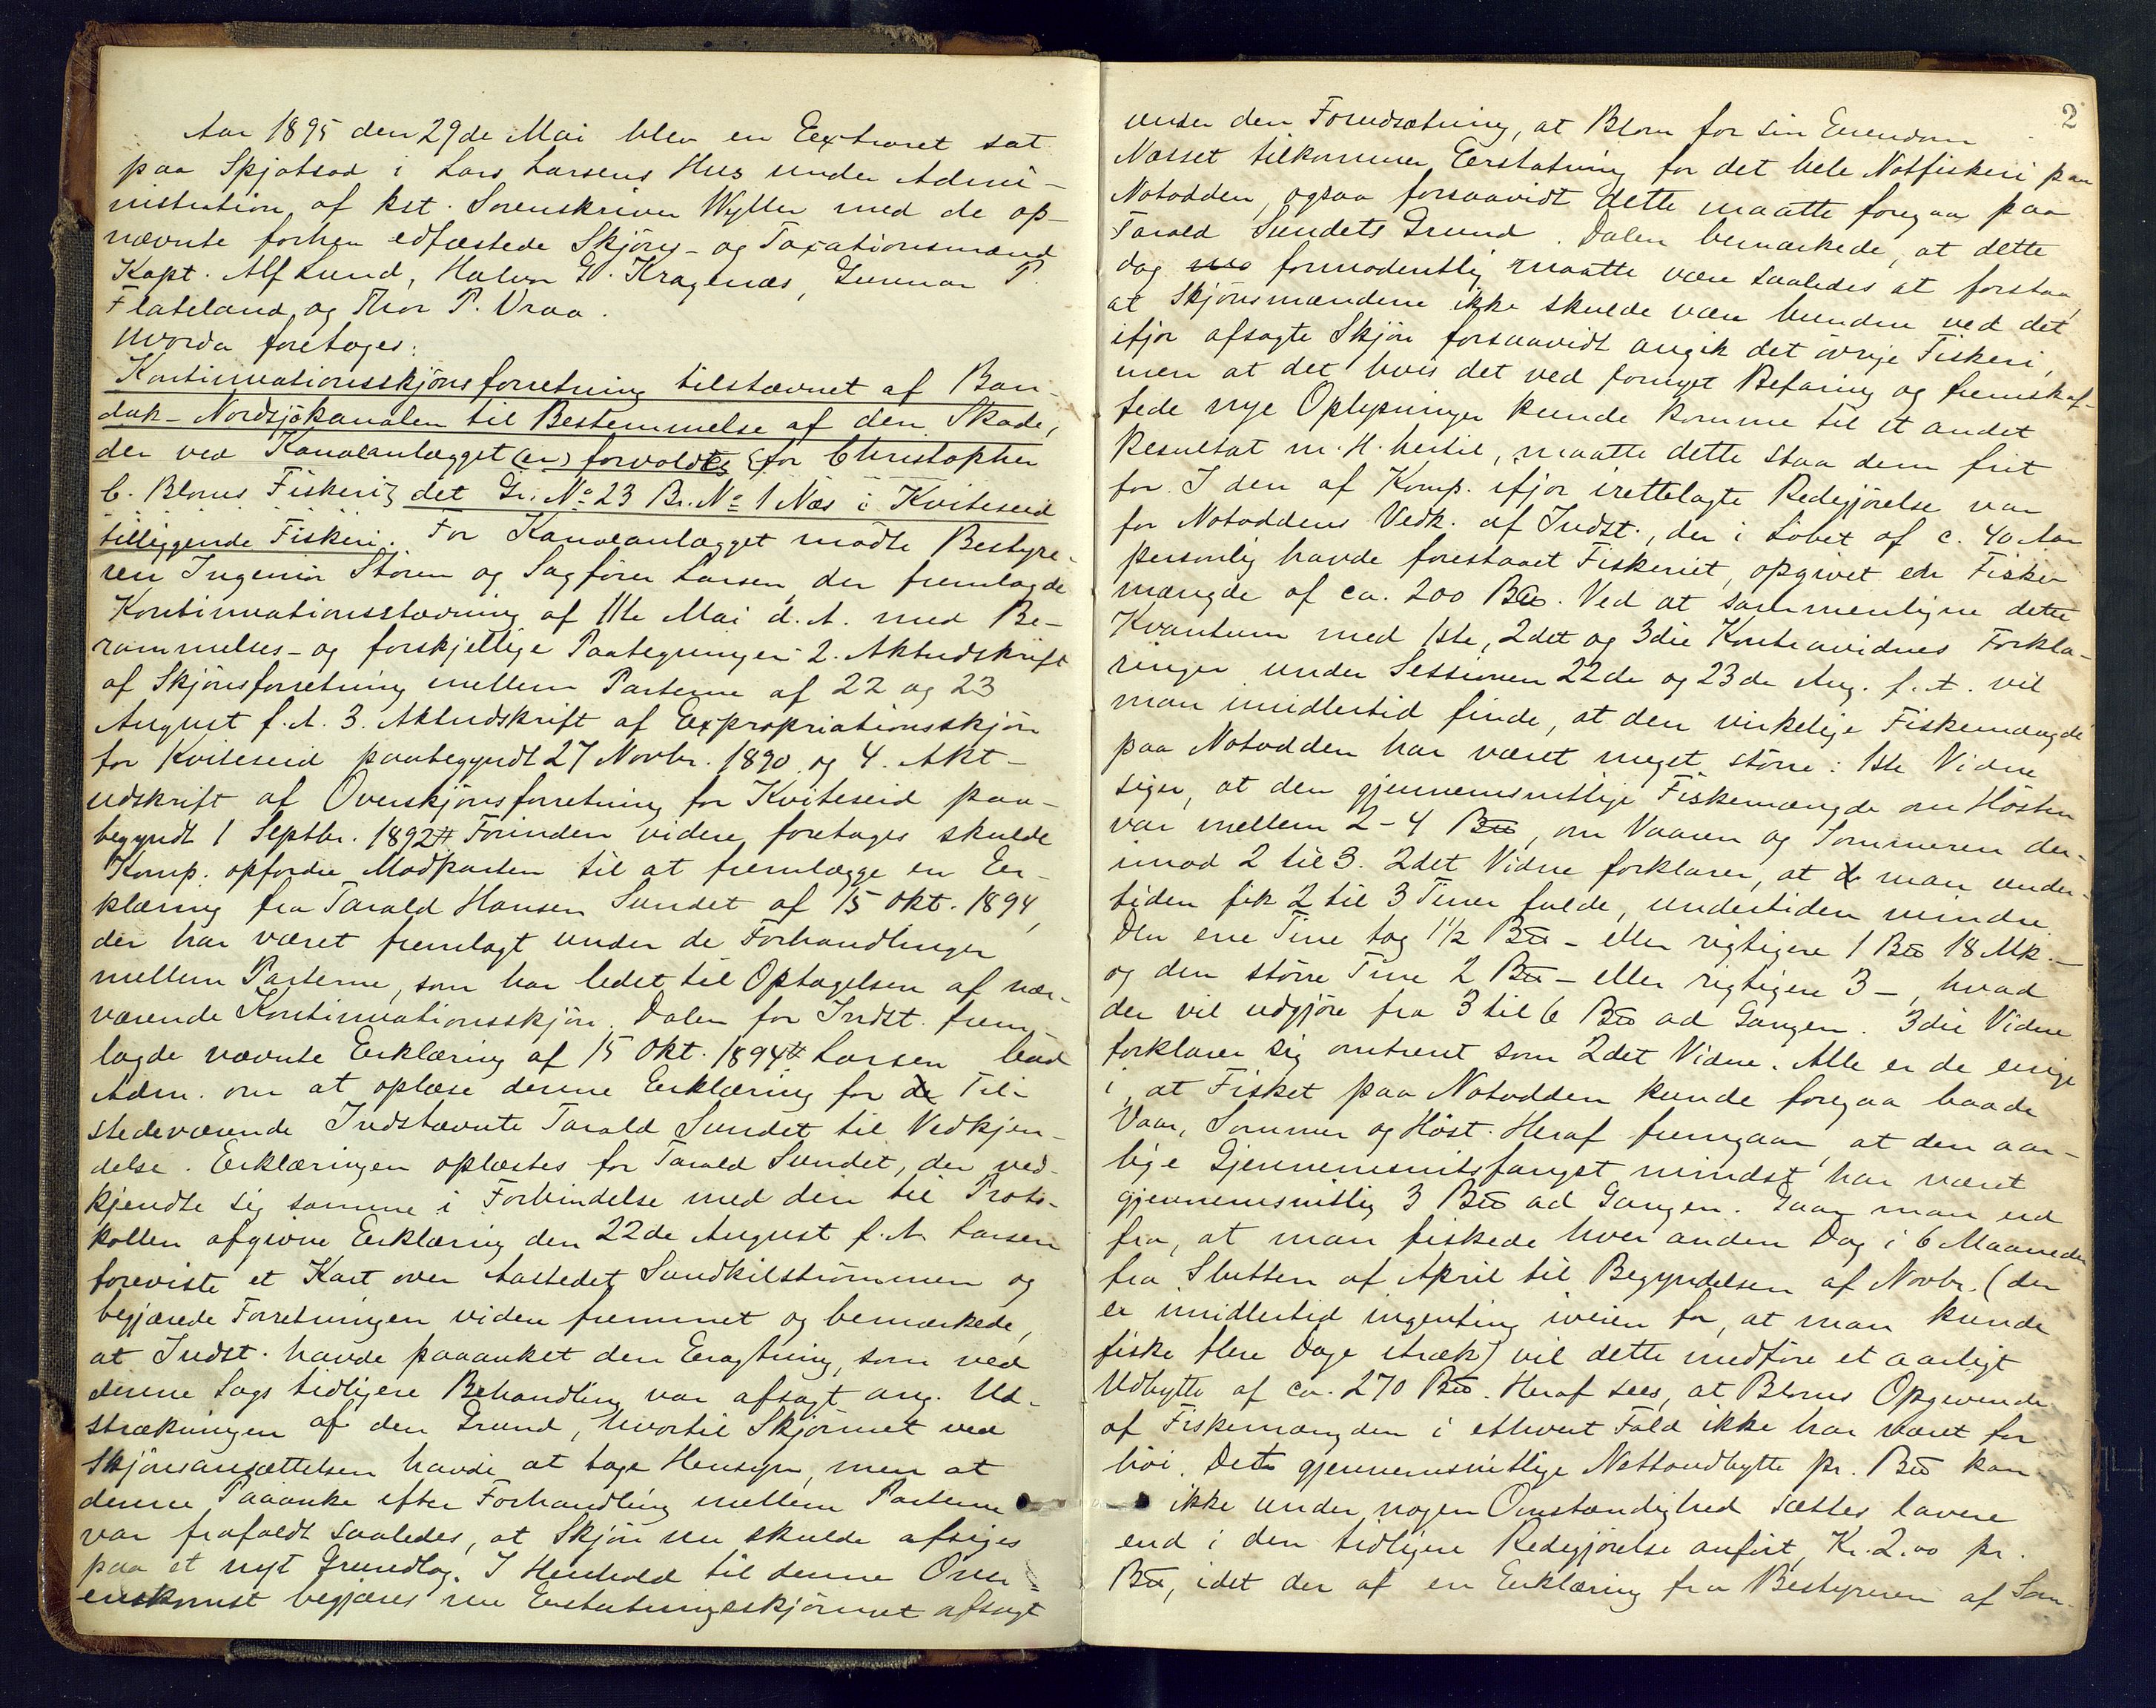 Aar 1895 den 29de Mai blev en Eextraret sat
paa Spjotsod i Lars Larsens Hus under Admi-
nistration af kst. Sorenskriver Wyller med de op-
nævnte forhen edfæstede Skjöns- og Taxationsmænd
Kapt. Alf Lund, Halvor G. Kragenæs, Gunnar P.
Flateland og Thor P. Vraa.
Hvorda foretoges:
Kontinuationsskjönsforretning tilstævnet af Ban-
dak-Nordsjökanalen til Bestemmelse af den Skade,
der ved Kanalanlægget (er) forvoldtes for Christopher
C. Bloms Fiskeri det Gr. No 23 Br. No 1 Næs i Kviteseid
tilliggende Fiskeri. For Kanalanlægget mödte Bestyre-
ren Ingeniör Stören og Sagförer Larsen, der fremlagde
Kontinuationsstævning af 11te Mai d. A. med Be-
rammelses- og forskjellige Paategninger 2. Aktudskrift
af Skjönsforretning mellem Parterne af 22 og 23
August f. A. 3. Aktudskrift af Expropriationsskjön
for Kviteseid paabegyndt 27 Novbr. 1890 og 4. Akt-
udskrift af Overskjönsforretning for Kviteseid paa-
begyndt 1 Septbr. 1892 # Forinden videre foretages skulde
Komp. opfordre Modparten til at fremlægge en Er-
klæring fra Tarald Hansen Sundet af 15 Okt. 1894,
der har været fremlagt under de Forhandlinger
mellem Parterne, som har ledet til Optagelsen af nær-
værende Kontinuationsskjön. Dalen for Indst. frem-
lagde nævnte Erklæring af 15 Okt. 1894 # Larsen bad
Adm. om at oplæse denne Erklæring for de Til-
stedeværende Indstævnte Tarald Sundet til Vedkjen-
delse. Erklæringen oplæstes for Tarald Sundet, der ved-
kjendte sig samme i Forbindelse med den til Proto-
kollen afgivne Erklæring den 22de August f. A. Larsen
foreviste et Kart over Aastedet Sundkilströmmen og
begjærede Forretningen videre fremmet og bemærkede,
at Indst. havde paaanket den Eragtning, som ved
denne Sags tidligere Behandling var afsagt ang. Ud-
strækningen af den Grund, hvortil Skjönnet ved
Skjönsansættelsen havde at tage Hensyn, men at
denne Paaanke efter Forhandling mellem Parterne
var frafaldt saaledes, at Skjön nu skulde afsiges
paa et nyt Grundlag. I Henhold til denne Over-
enskomst begjæres nu Erstatningsskjönnet afsagt
2
under den Forudsætning, at Blom for sin Eiendom
Næsset tilkommer Eerstatning for det hele Notfiskeri paa
Notodden, ogsaa forsaavidt dette maatte foregaa paa
Tarald Sundets Grund. Dalen bemærkede, at dette
dog formodentlig maatte være saaledes at forstaa,
at Skjönsmændene ikke skulde være bundne ved det
ifjor afsagte Skjön forsaavidt angik det övrige Fiskeri,
men at det hvis det ved fornyet Befaring og fremskaf-
fede nye Oplysninger kunde komme til et andet
Resultat m. H. hertil, maatte dette staa dem frit
for. I den af Komp. ifjor irettelagte Redegjörelse var
for Notoddens Vedk. af Indst., der i Löbet af c. 40 Aar
personlig havde forestaaet Fiskeriet, opgivet en Fiske-
mængde af ca. 200 B℔. Ved at sammenligne dette
Kvantum med 1ste, 2det og 3die Kontravidnes Forkla-
ringer under Sessionen 22de og 23de Aug. f. A. vil
man imidlertid finde, at den virkelige Fiskemængde
paa Notodden har været meget större: 1ste Vidne
siger, at den gjennemsnitlige Fiskemængde om Hösten
var mellem 2-4 B℔, om Vaaren og Sommeren der-
imod 2 til 3. 2det Vidne forklarer, at man under-
tiden fik 2 til 3 Tiner fulde, undertiden mindre.
Den ene Tine tog 1½ B℔ - eller rigtigere 1 B℔ 18 Mk. -
og den större Tine 2 B℔ - eller rigtigere 3 -, hvad
der vil udgjöre fra 3 til 6 B℔ ad Gangen. 3die Vidne
forklarer sig omtrent som 2det Vidne. Alle er de enige
i, at Fisket paa Notodden kunde foregaa baade
Vaar, Sommer og Höst. Heraf fremgaar, at den aar-
lige Gjennemsnitsfangst mindst har været
gjennemsnitlig 3 B℔ ad Gangen. Gaar man ud
fra, at man fiskede hver anden Dag i 6 Maaneder
fra Slutten af April til Begyndelsen af Novbr. (der
er imidlertid ingenting iveien for, at man kunde
fiske flere Dage i træk) vil dette medföre et aarligt
Udbytte af ca. 270 B℔. Heraf sees, at Bloms Opgivende
af Fiskemængden i ethvert Fald ikke har været for
höi. Det gjennemsnitlige Nettoudbytte pr. B℔ kan
ikke under nogen Omstændighed sættes lavere
end i den tidligere Redegjörelse anfört, Kr. 2.00 pr.
B℔, idet der af en Erklæring fra Bestyreren af Som-